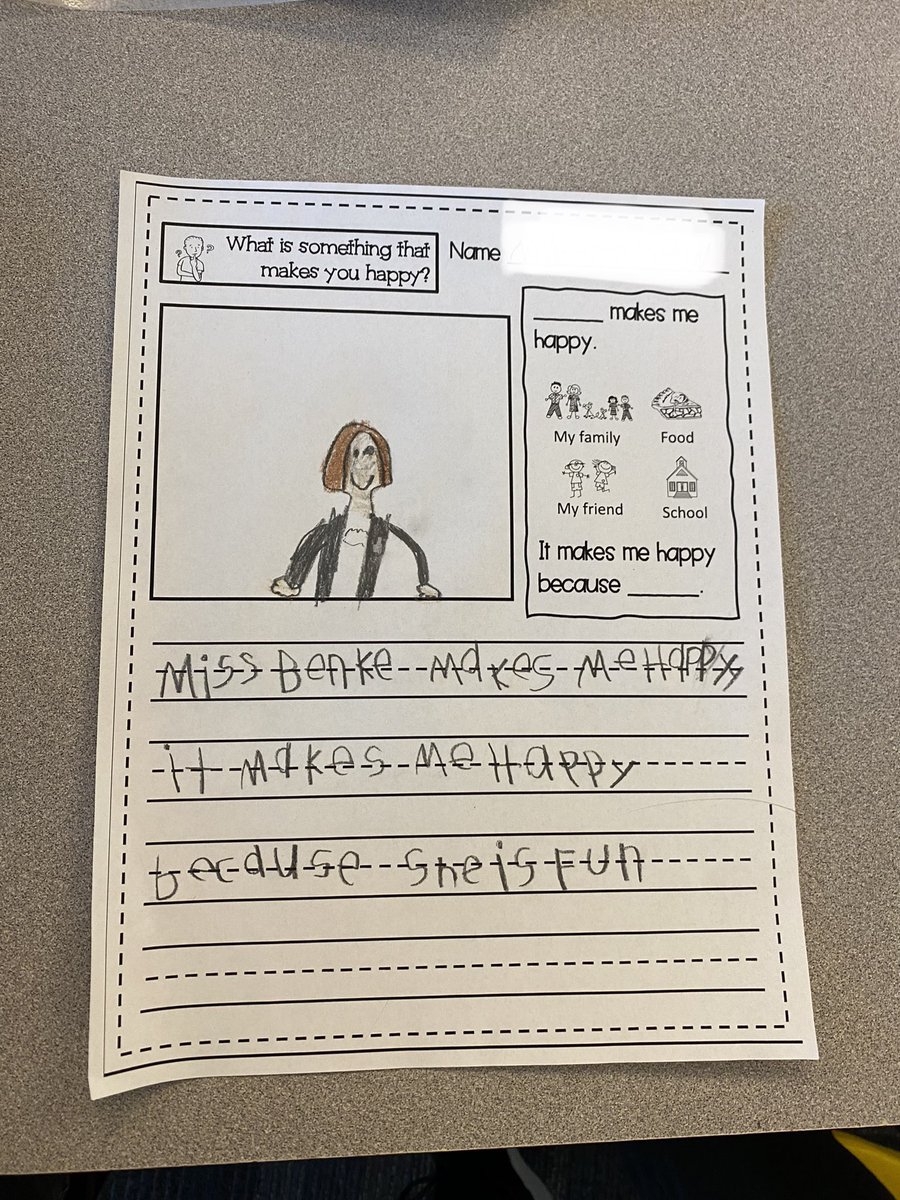 What is something that
makes you happy?
Name
______ makes me
happy.
My family
Food
My friend
School
It makes me happy
because ______.
Miss Benke makes me Happy
it makes me Happy
because she is Fun